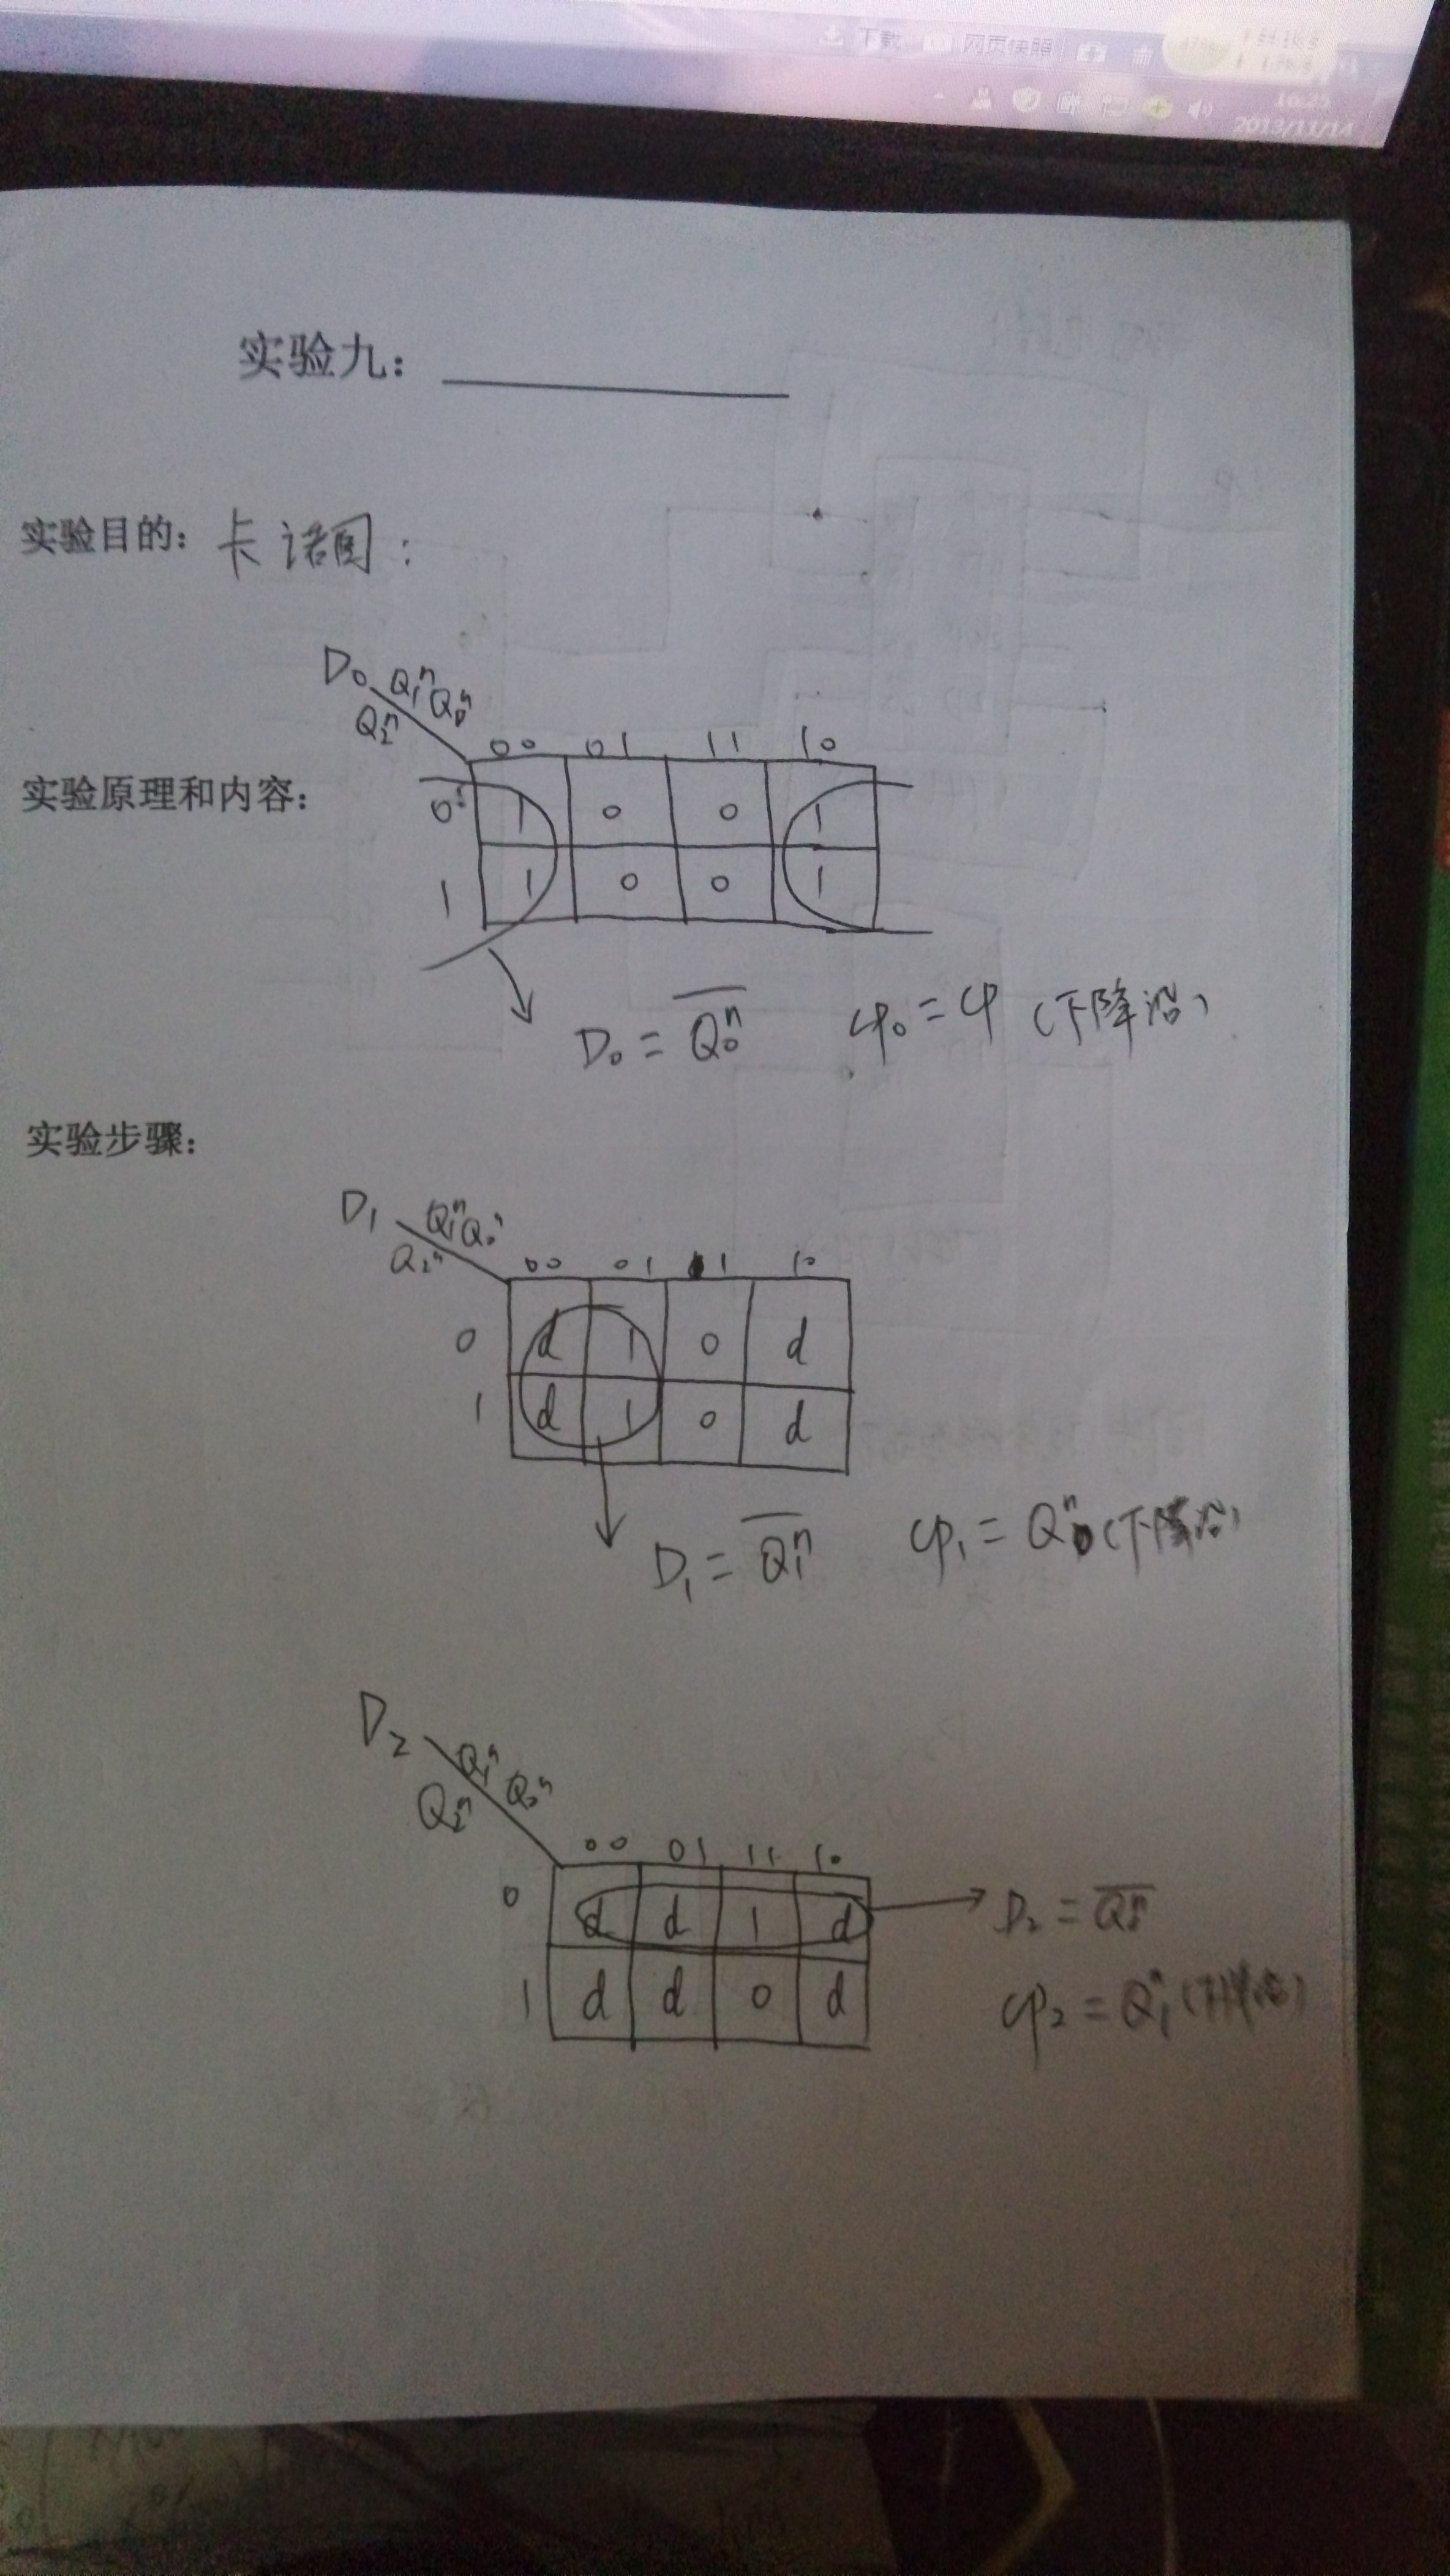 下载 网页快照
16:25
2013/11/14
实验九：
实验目的：卡诺图：
D₀ Q₁ⁿQ₀ⁿ
Q₂ⁿ
00 01 11 10
实验原理和内容：
0 1 0 0 1
1 1 0 0 1
D₀ = \overline{Q₀ⁿ} cp₀ = cp （下降沿）
实验步骤：
D₁ Q₁ⁿQ₀ⁿ
Q₂ⁿ
00 01 11 10
0 d 1 0 d
1 d 1 0 d
D₁ = \overline{Q₁ⁿ} cp₁ = Q₀ⁿ（下降沿）
D₂ Q₁ⁿ Q₀ⁿ
Q₂ⁿ
00 01 11 10
0 d d 1 d
D₂ = \overline{Q₂ⁿ}
1 d d 0 d
cp₂ = Q₁ⁿ